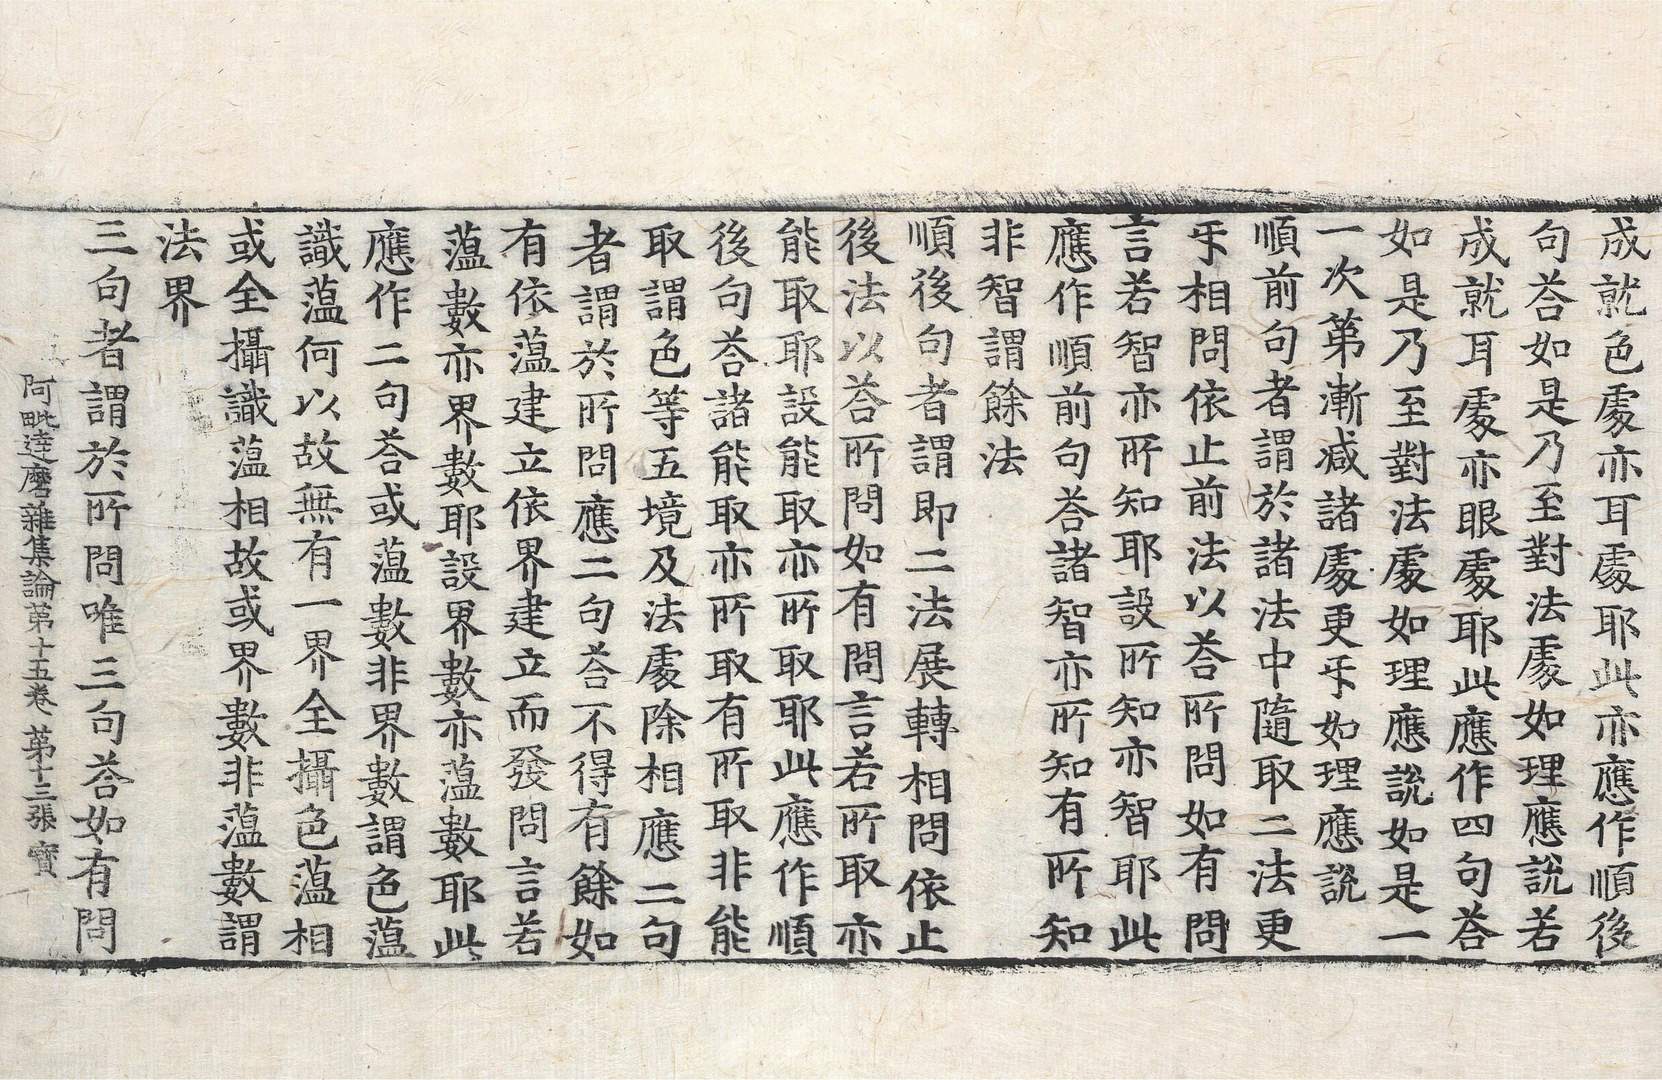 成就色處亦耳處耶此亦應作順後
句荅如是乃至對法處如理應說若
成就耳處亦眼處耶此應作四句荅
如是乃至對法處如理應說如是一
一次第漸減諸處更㸦如理應說
順前句者謂於諸法中隨取二法更
㸦相問依止前法以荅所問如有問
言若智亦所知耶設所知亦智耶此
應作順前句荅諸智亦所知有所知
非智謂餘法
順後句者謂即二法展轉相問依止
後法以荅所問如有問言若所取亦
能取耶設能取亦所取耶此應作順
後句荅諸能取亦所取有所取非能
取謂色等五境及法處除相應二句
者謂於所問應二句荅不得有餘如
有依薀建立依界建立而發問言若
薀數亦界數耶設界數亦薀數耶此
應作二句荅或薀數非界數謂色薀
識薀何以故無有一界全攝色薀相
或全攝識薀相故或界數非薀數謂
法界
三句者謂於所問唯三句荅如有問
阿毗達磨雜集論第十五卷 第十三張 寶